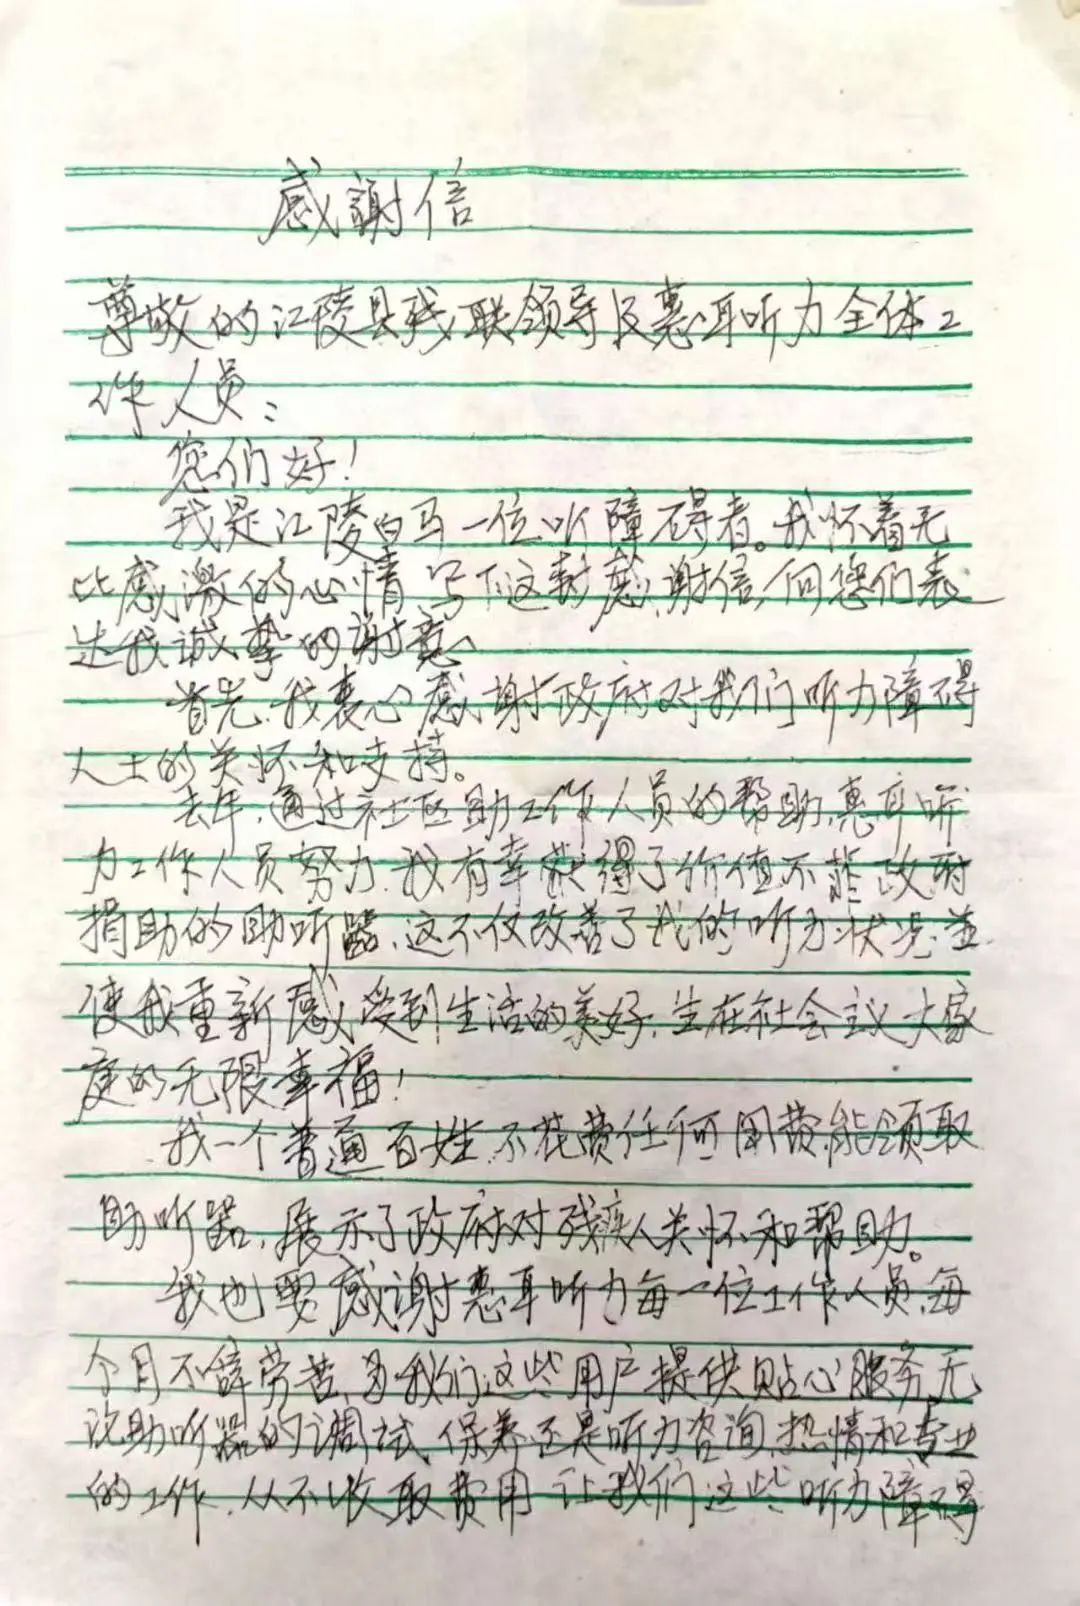 感謝信
尊敬的江陵县残联领导及惠耳听力全体工
作人员：
您们好！
我是江陵白马一位听障碍者。我怀着无
比感激的心情写下这封感谢信，向您们表
达我诚挚的谢意。
首先，我衷心感谢政府对我们听力障碍
人士的关怀和支持。
去年，通过社区助工作人员的帮助，惠耳听
力工作人员努力，我有幸获得了价值不菲政府
捐助的助听器，这不仅改善了我的听力状况，并
使我重新感受到生活的美好，生在社会主义大家
庭的无限幸福！
我一个普通百姓，不花费任何用费，能领取
助听器，展示了政府对残疾人关怀和帮助。
我也要感谢惠耳听力每一位工作人员，每
个月不辞劳苦，为我们这些用户提供贴心服务，无
论助听器的调试，保养还是听力咨询，热情和专业
的工作，从不收取费用，让我们这些听力障碍